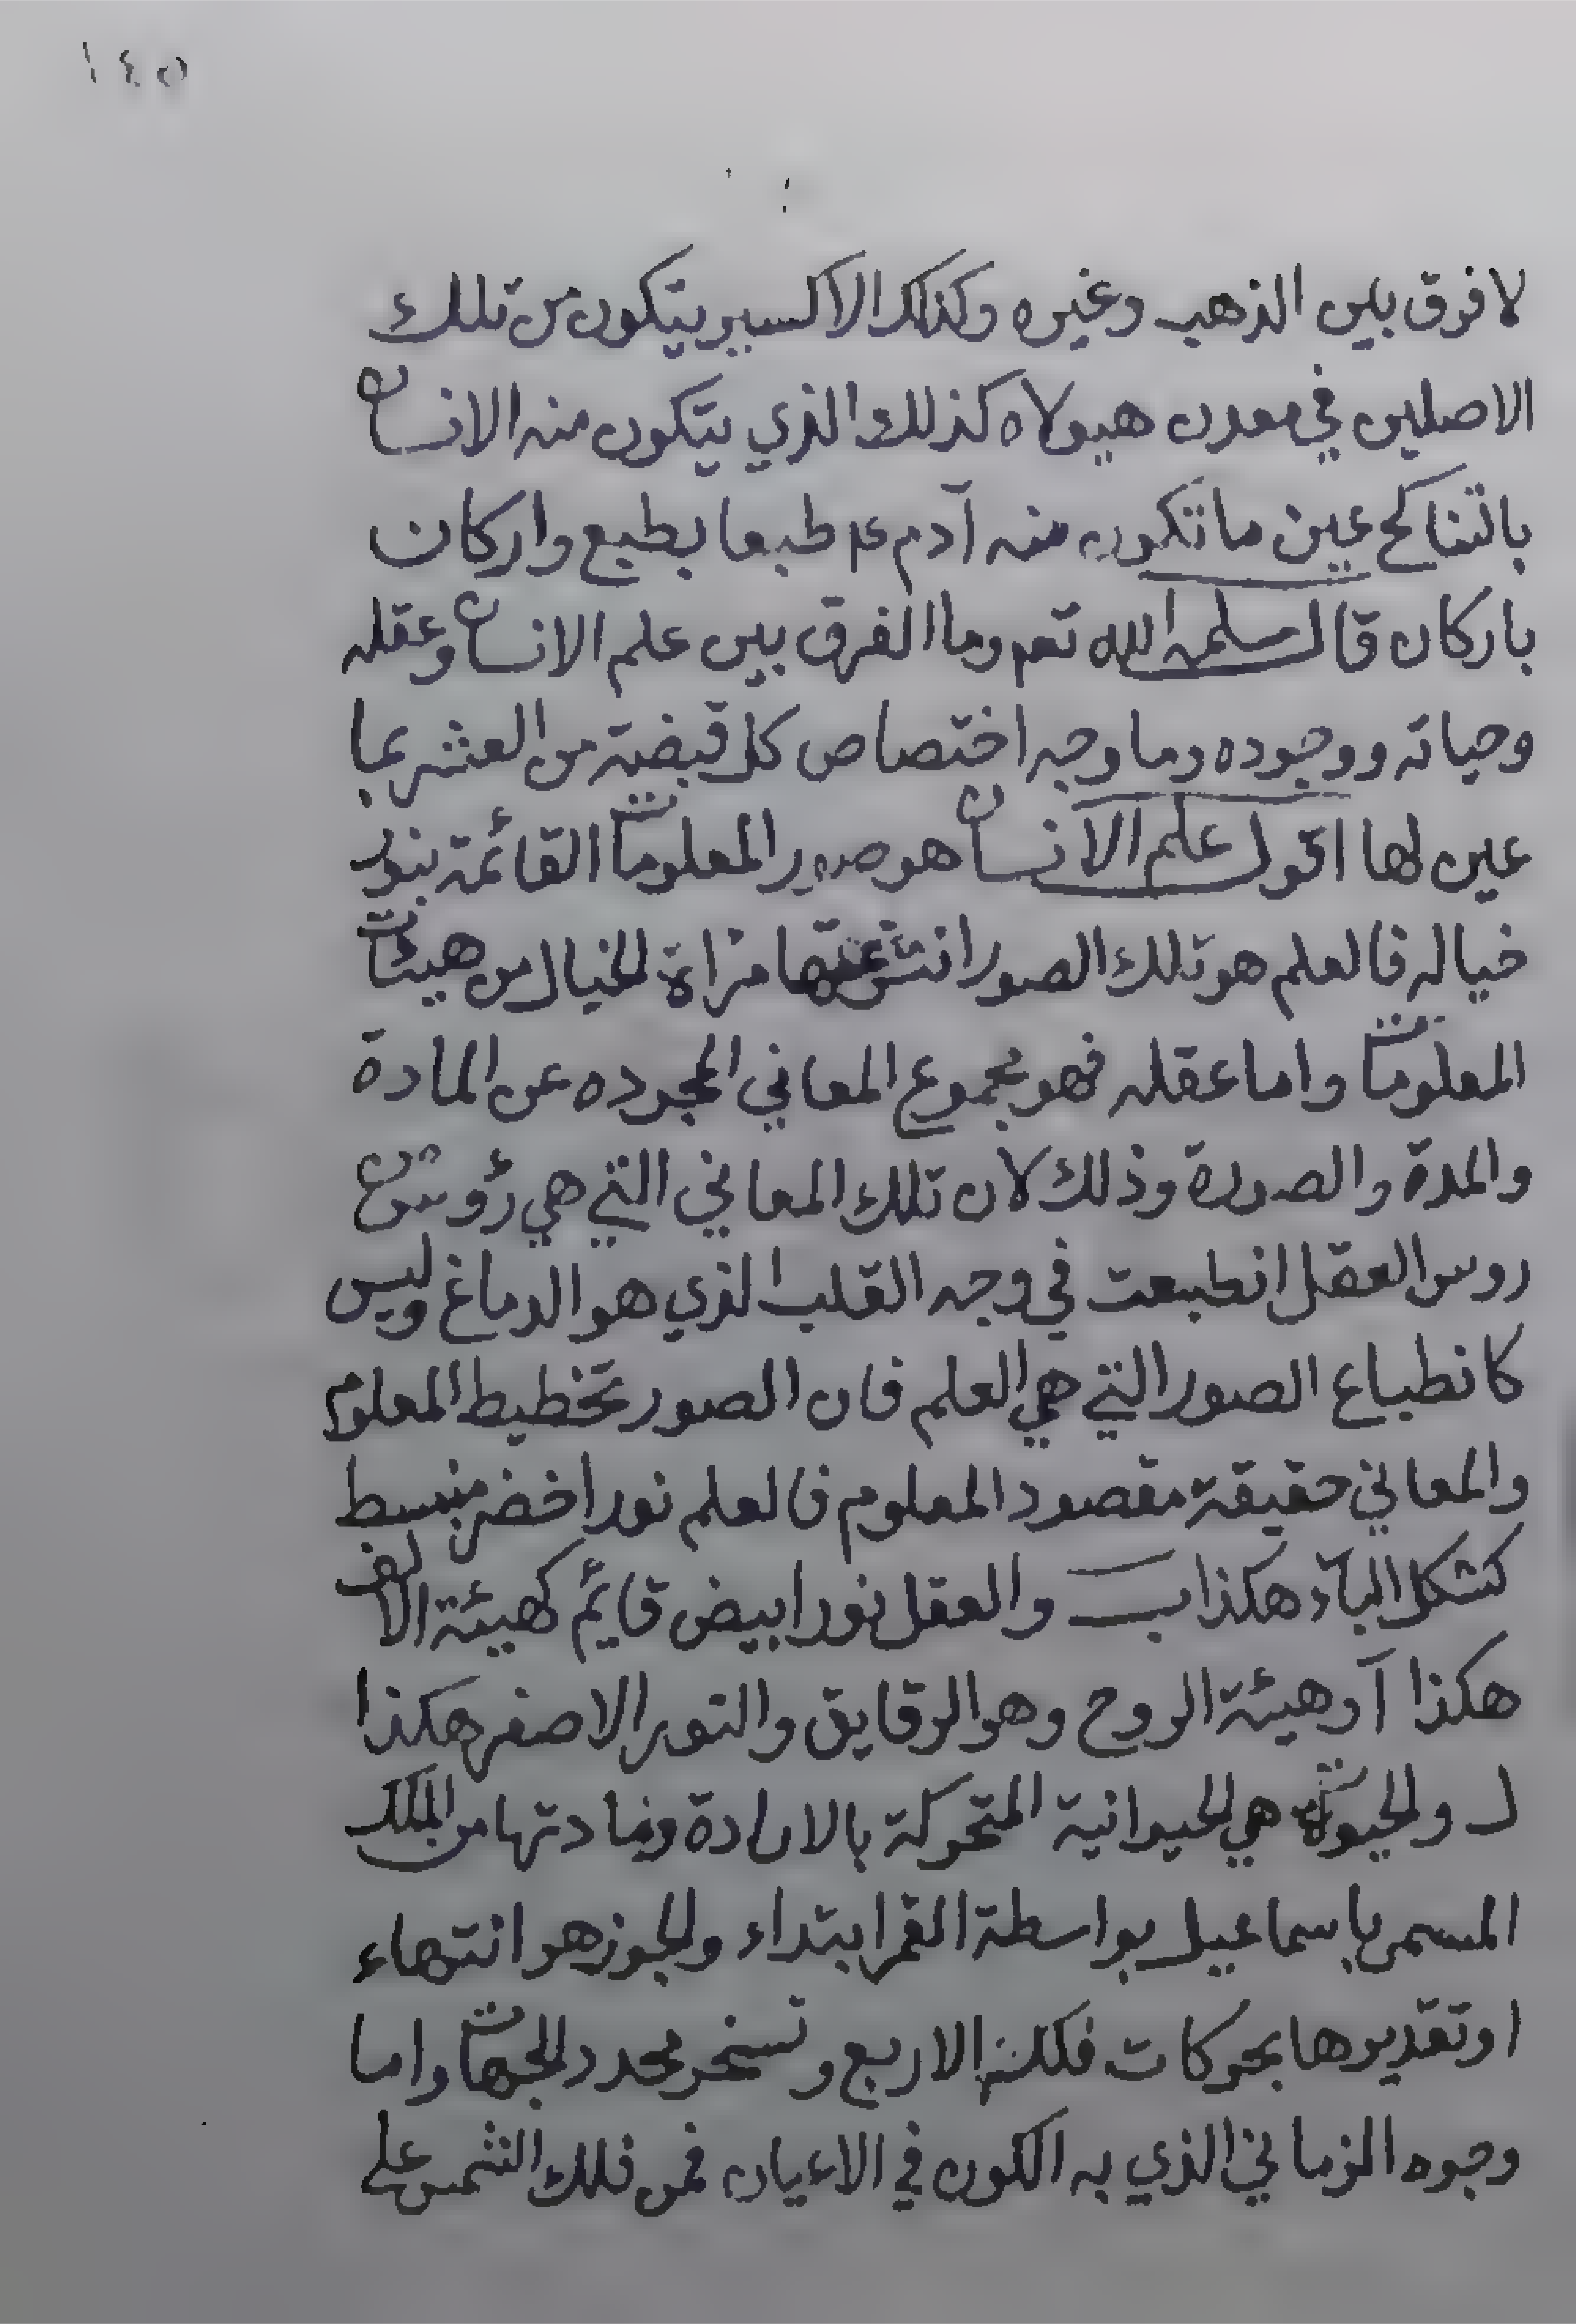 ١٤٥
لا فرق بين الذهب وغيره وكذلك الاكسير يتكون من تلك
الاصلين في معدن هيولاه كذلك الذي يتكون منه الانسان
بالتناكح عين ما تكون منه آدم ع۴ طبعا بطبع واركان
باركان قال سلمه الله تعم وما الفرق بين علم الانسان وعقله
وحياته ووجوده وما وجه اختصاص كل قبضة من العشر بما
عين لها اقول علم الانسان هو صور المعلومات القائمة بنور
خياله فالعلم هو تلك الصور انتزعتها مرٰاة الخيال من هيئات
المعلومات واما عقله فهو مجموع المعاني المجرده عن المادة
والمدة والصورة وذلك لان تلك المعاني التي هي رؤس من
روس العقل انطبعت في وجه القلب الذي هو الدماغ وليس
كانطباع الصور التي هي العلم فان الصور تخطيط المعلوم
والمعاني حقيقة مقصود المعلوم فالعلم نور اخضر منبسط
كشكل البآء هكذا ب والعقل نور ابيض قائم كهيئة الالف
هكذا آ وهيئة الروح وهو الرقايق والنور الاصفر هكذا
لـ والحيوة هي الحيوانية المتحركة بالارادة ومادتها من الملك
المسمى باسماعيل بواسطة القمر ابتداء والجوزهر انتهاء
او تقديرها بحركات فلكه الاربع وتسخر محدد الجهات واما
وجوه الزماني الذي به الكون في الاعيان فمن فلك الشمس على